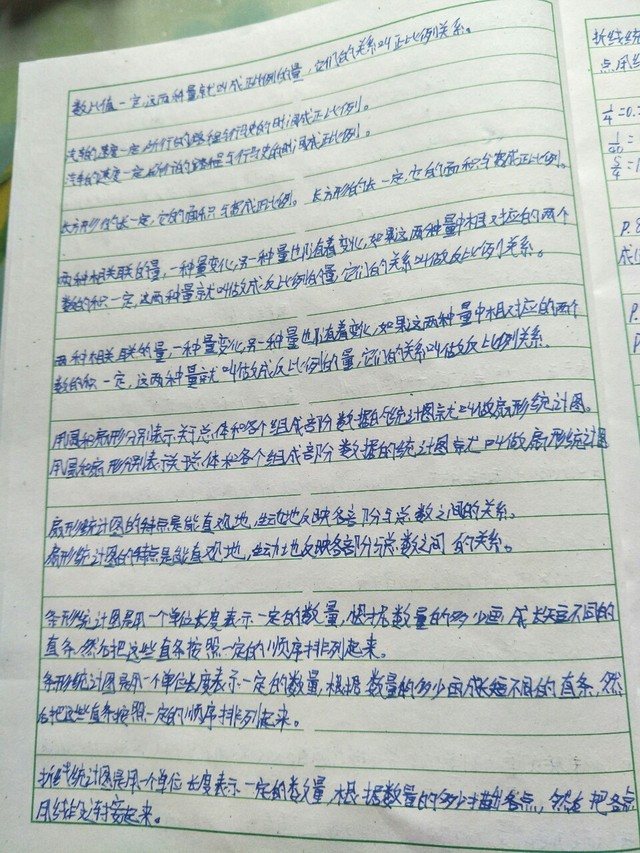 数比值一定,这两种量就叫成正比例的量,它们的关系叫正比例关系。
汽车的速度一定,所行的路程与行驶的时间成正比例。
汽车的速度一定,所行的路程与行驶的时间成正比例。
长方形的长一定,它的面积与宽成正比例。长方形的长一定,它的面积与宽成正比例。
两种相关联的量,一种量变化,另一种量也随着变化,如果这两种量中相对应的两个
数的积一定,这两种量就叫做成反比例的量,它们的关系叫做反比例关系。
两种相关联的量,一种量变化,另一种量也随着变化,如果这两种量中相对应的两个
数的积一定,这两种量就叫做成反比例的量,它们的关系叫做反比例关系
用圆和扇形分别表示关于总体和各个组成部分数据的统计图就叫做扇形统计图。
用圆和扇形分别表示关于总体和各个组成部分数据的统计图就叫做扇形统计图
扇形统计图的特点是能直观地,生动地反映各部分与总数之间的关系。
扇形统计图的特点是能直观地,生动地反映各部分与总数之间的关系。
条形统计图是用一个单位长度表示一定的数量,根据数量的多少画成长短不同的
直条,然后把这些直条按照一定的顺序排列起来。
条形统计图是用一个单位长度表示一定的数量,根据数量的多少画成长短不同的直条,然
后把这些直条按照一定的顺序排列起来。
折线统计图是用一个单位长度表示一定的数量,根据数量的多少描出各点,然后把各点
用线段连接起来。
折线统
点用线